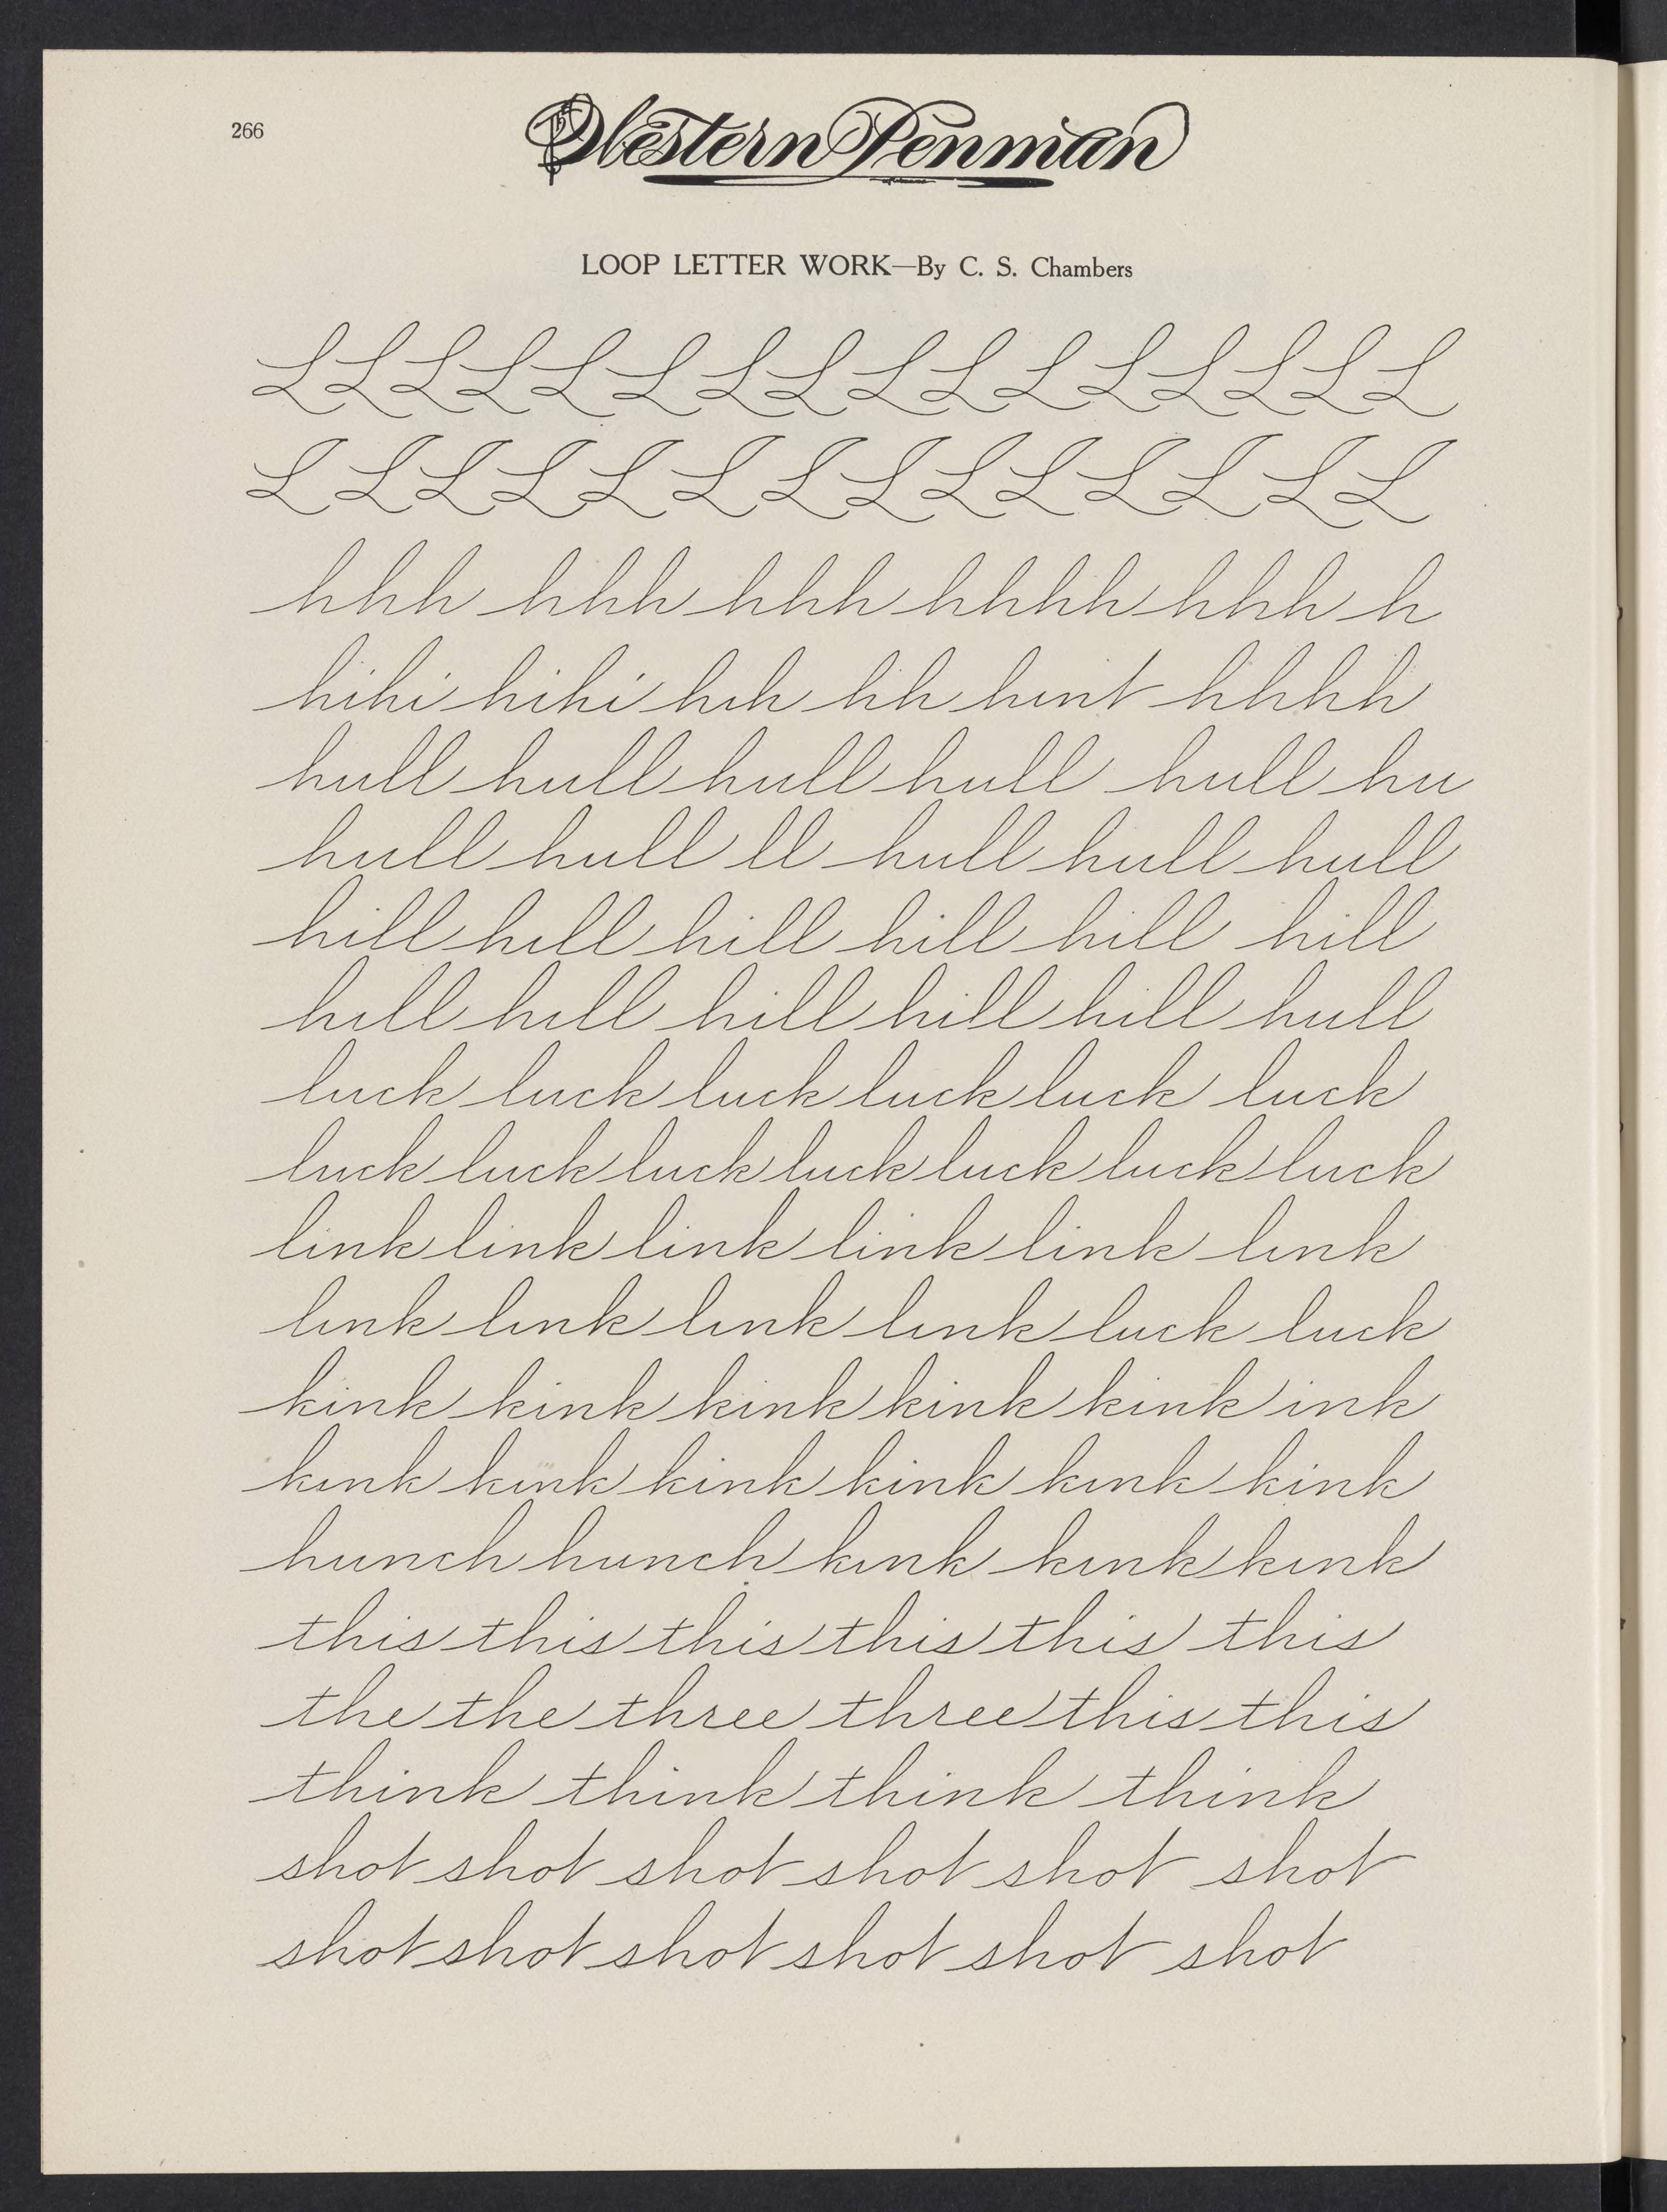 266
The Western Penman
LOOP LETTER WORK—By C. S. Chambers
L L L L L L L L L L L L L L L L
L L L L L L L L L L L L L L
hhh hhh hhh hhhh hhh h
hihi hihi hih hh hint hhhh
hull hull hull hull hull hu
hull hull ll hull hull hull
hill hill hill hill hill hill
hill hill hill hill hill hull
luck luck luck luck luck luck
luck luck luck luck luck luck luck
link link link link link link
link link link link luck luck
kink kink kink kink kink ink
kink kink kink kink kink kink
hunch hunch kink kink kink
this this this this this this
the the three three this this
think think think think
shot shot shot shot shot shot
shot shot shot shot shot shot